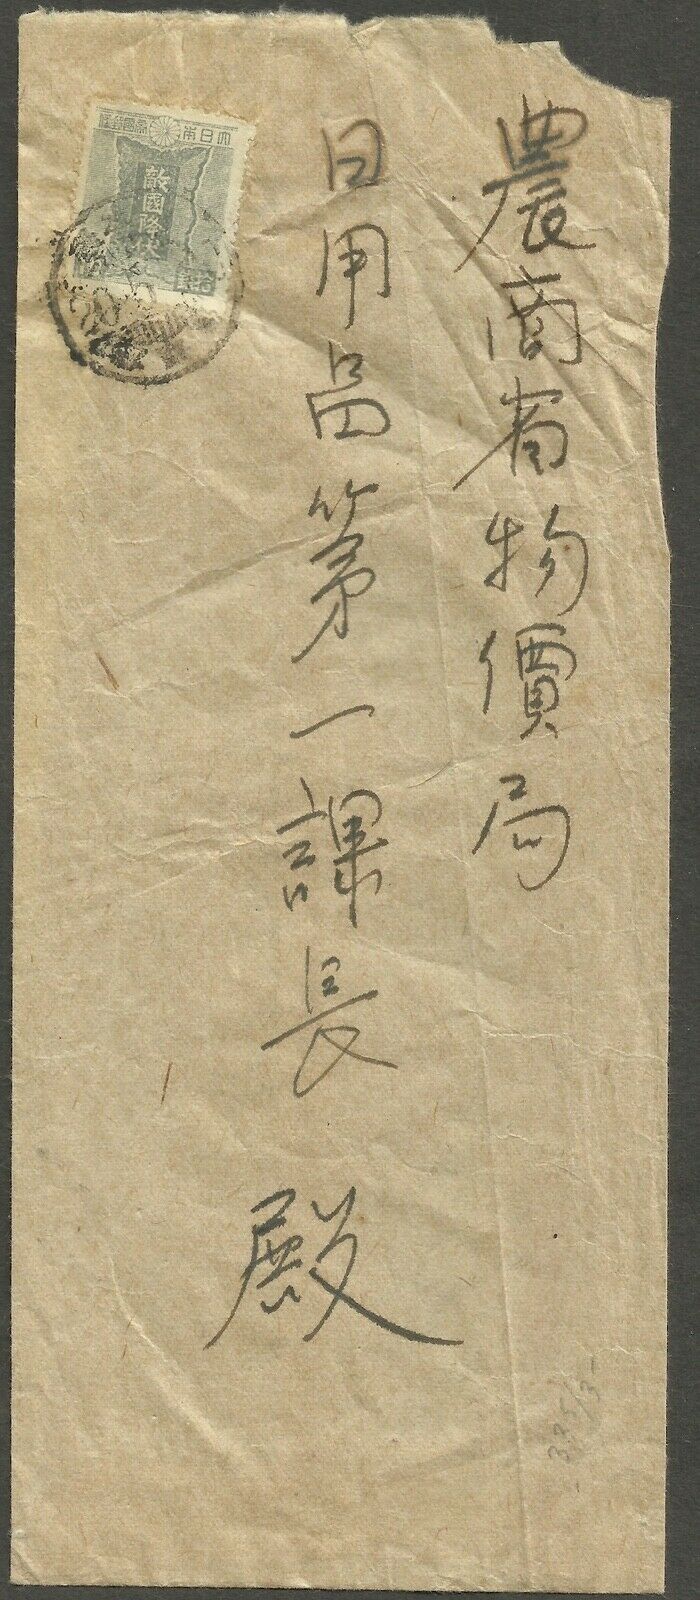 農商省物價局
日用品第一課長
殿
大日本帝國郵便
敵國降伏
拾錢